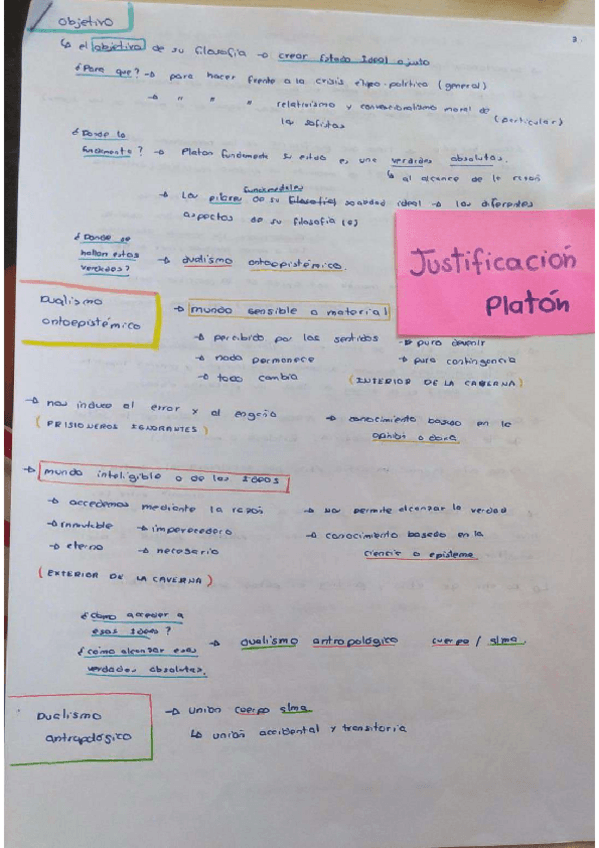 objetivo
3
↳ el objetivo de su filosofía → crear Estado Ideal o justo
¿Para que? → para hacer frente a la crisis etico-politica (general)
→ " " " relativismo y convencionalismo moral de
los sofistas (particular)
¿Donde lo
fundamenta? → Platon fundamenta su estado en unas verdades absolutas.
↳ al alcance de la razón
fundamentales
→ Los pilares de su filosofía/ sociedad ideal → los diferentes
aspectos de su filosofía (o)
¿Donde se
hallan estas
verdades? → dualismo ontoepistémico.
Justificación
Platón
Dualismo
ontoepistémico
→ mundo sensible o material
→ percibido por los sentidos → puro devenir
→ nada permanece → pura contingencia
→ todo cambia (INTERIOR DE LA CAVERNA)
→ nos induce al error y al engaño → conocimiento basado en la
(PRISIONEROS IGNORANTES) opinión o doxa
→ mundo inteligible o de las Ideas
→ accedemos mediante la razón → nos permite alcanzar la verdad
→ inmutable → imperecedero → conocimiento basado en la
→ eterno → necesario ciencia o episteme
(EXTERIOR DE LA CAVERNA)
¿Cómo acceder a
esas ideas?
¿cómo alcanzar esas
verdades absolutas. → dualismo antropológico cuerpo / alma.
Dualismo
antropológico
→ unión cuerpo alma
↳ unión accidental y transitoria